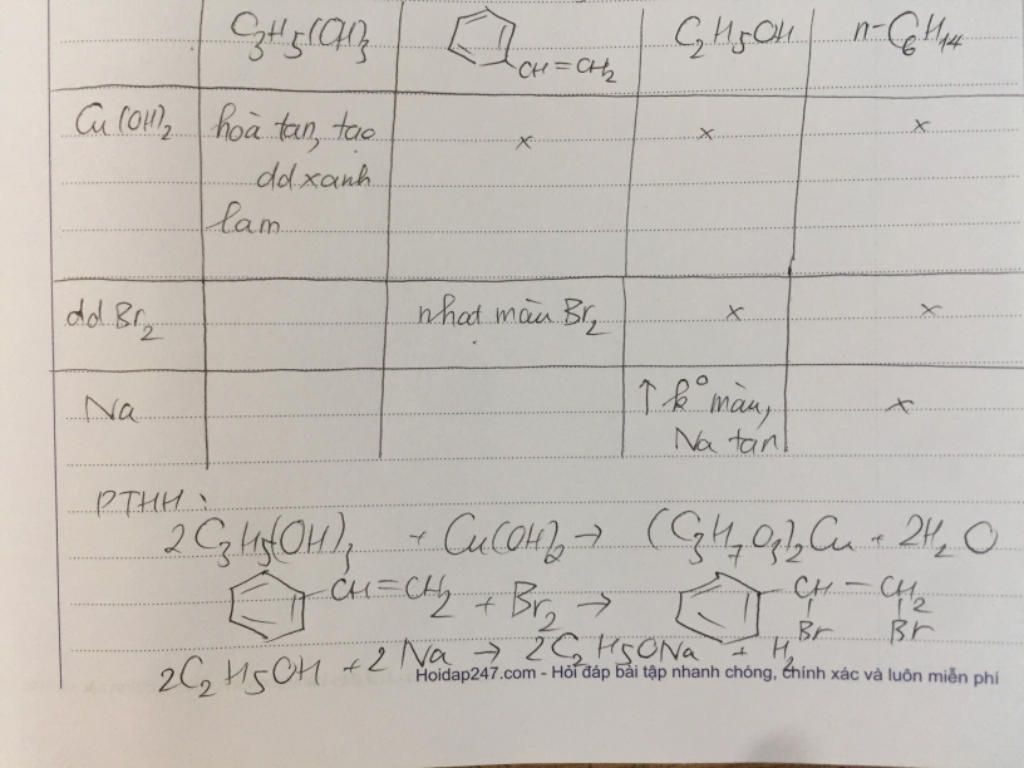 C3H5(OH)3 CH=CH2 C2H5OH n-C6H14
Cu(OH)2 hoà tan, tạo x x x
dd xanh
lam
dd Br2 nhạt màu Br2 x x
Na ↑ ko màu, x
Na tan
PTHH:
2C3H5(OH)3 + Cu(OH)2 → (C3H7O3)2Cu + 2H2O
CH=CH2 + Br2 → CH - CH2
Br Br
2C2H5OH + 2Na → 2C2H5ONa + H2
Hoidap247.com - Hỏi đáp bài tập nhanh chóng, chính xác và luôn miễn phí